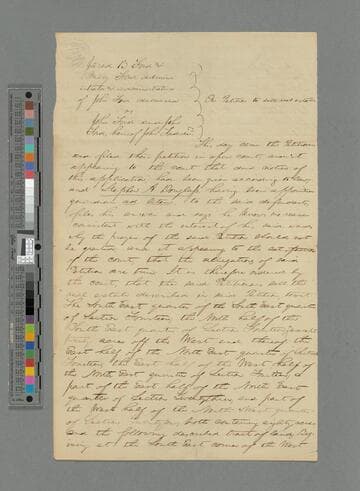 Jared B Ford &
Mary Ford adminis
trator & administratrix
of John Ford deceased
vs
John Ford and John
Ford, heirs of John Ford decd
On Petition to sell real estate
This day came the Petitioners
and filed their petition in open court and it
appearing to the court that due notice of
this application had been given according to law
and Stephen A Douglass having been appointed
guardian ad litem to the said defendants
files his answer and says he knows no reason
consistent with the interest of the said wards
why the prayer of the said Petition should not
be granted and it appearing to the satisfaction
of the court that the allegations of said
Petition are true It is therefore ordered by
the court, that the said Petitioners sell the
real estate described in said Petition to wit
The South East quarter of the South East quarter
of Section Fourteen the North half of the
North East quarter of Section Fourteen except
acres off the West end thereof the
East half of the North East quarter of Section
Fourteen the East half of the West half of
the North East quarter of Section Fourteen a
part of the East half of the North East
quarter of Section Twenty three and part of
the West half of the North West quarter
of Section both containing eighty acres
and the following described tract of land, Beg
ining at the South East corner of the West